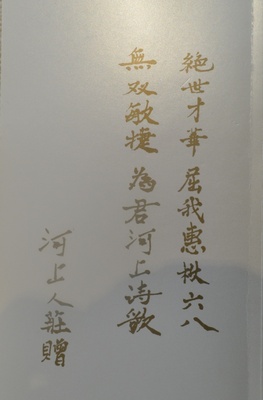 絕世才華屈我惠楸六八
無双敏捷為君河上诗歌
河上人莊贈